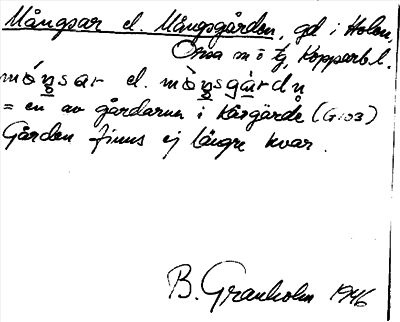 Mångsar el. Mångsgården, gd i Holen,
Orsa sn o tg, Kopparb. l.
mǻŋsar el. mǻŋsgàrdn
= en av gårdarna i Kårgärde (G103)
Gården finns ej längre kvar.
B. Granholm 1946